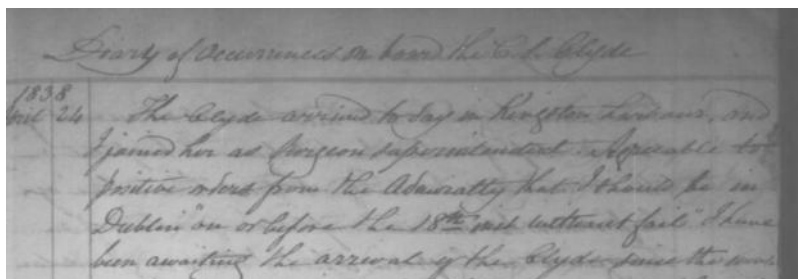 Diary of Occurrences on board the C. S. Clyde
1838
April 24 The Clyde arrived to day in Kingston harbour, and
I joined her as Surgeon superintendent. Agreeable to
positive orders from the Admiralty that I should be in
Dublin "on or before the 18th inst without fail" I have
been awaiting the arrival of the Clyde since the